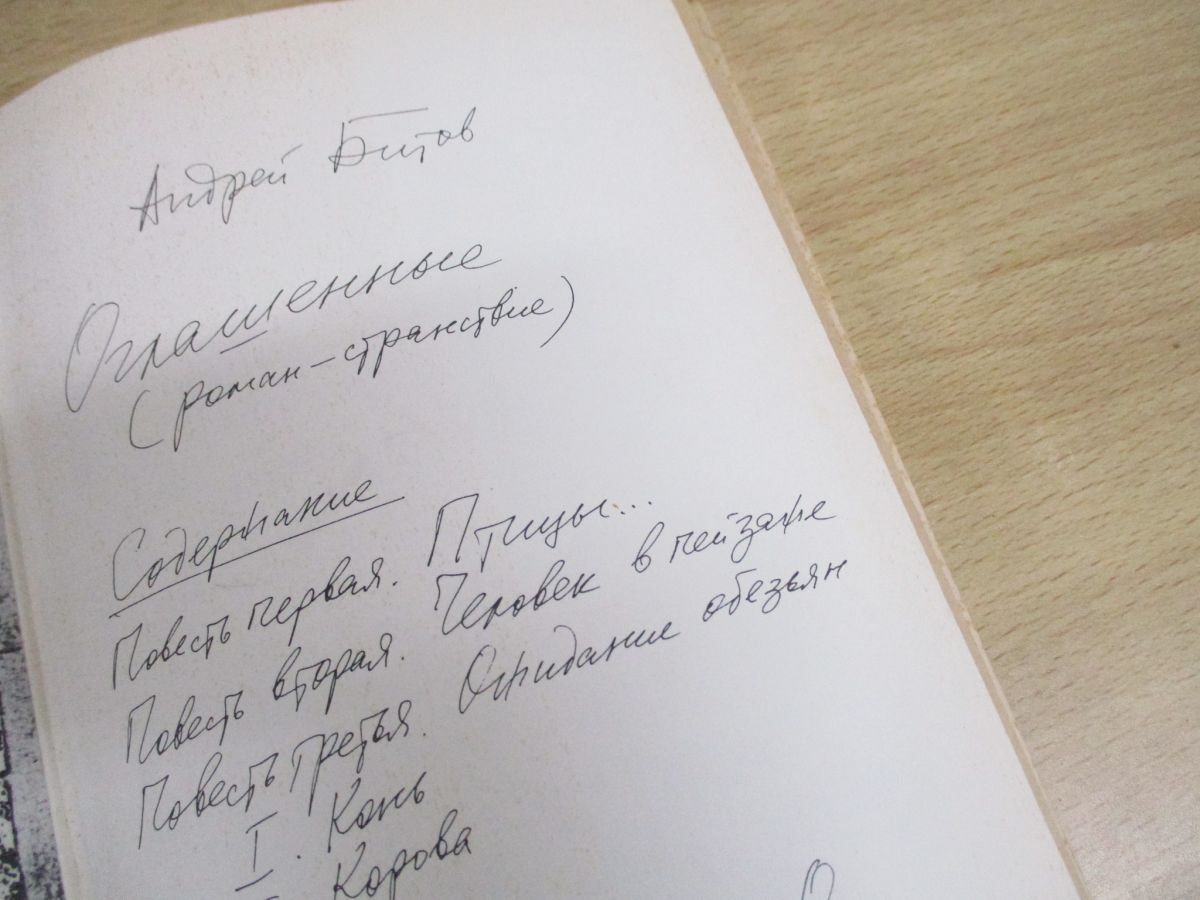 Андрей Битов
Оглашенные
(роман-странствие)
Содержание
Повесть первая. Птицы...
Повесть вторая. Человек в пейзаже
Повесть третья. Ожидание обезьян
I. Конь
Корова